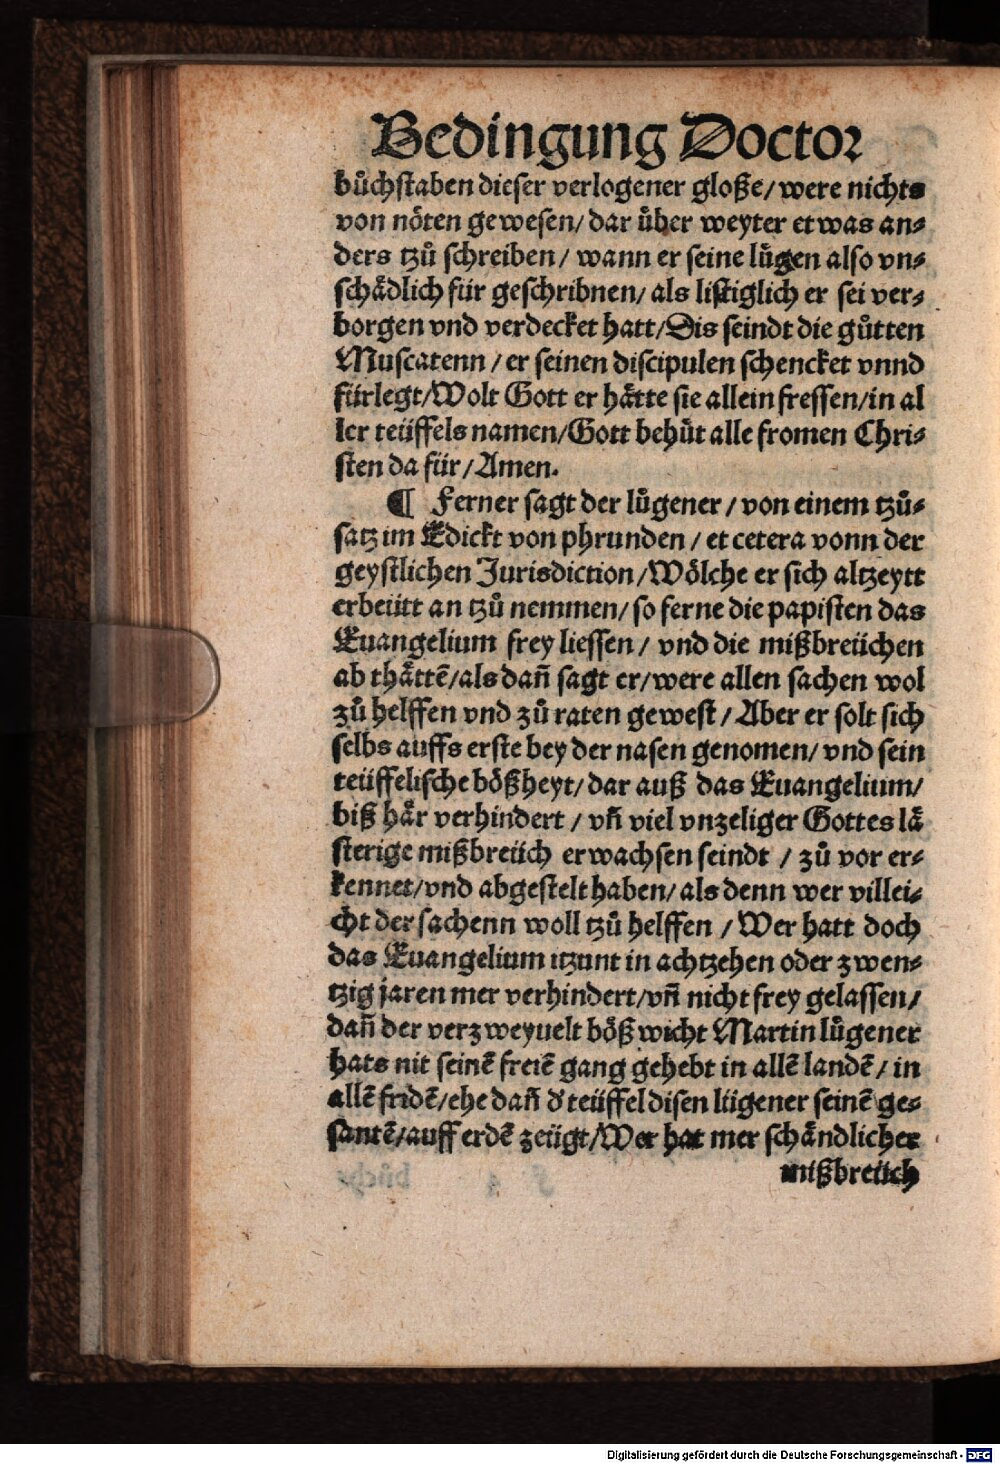 Bedingung Doctor
bůchstaben dieser verlogener gloße/ were nichts
von nöten gewesen/ dar über weyter etwas an⸗
ders tzů schreiben/ wann er seine lůgen also vn⸗
schådlich für geschribnen/ als listiglich er sei ver⸗
borgen vnd verdecket hatt/ Dis seindt die gůtten
Muscatenn/ er seinen discipulen schencket vnnd
fürlegt/ Wolt Gott er håtte sie allein fressen/ in al
ler teüffels namen/ Gott behůt alle fromen Chri⸗
sten da für/ Amen.
¶ Ferner sagt der lůgener/ von einem tzů⸗
satz im Edickt von phrunden/ et cetera vonn der
geystlichen Jurisdiction/ Wölche er sich altzeytt
erbeütt an tzů nemmen/ so ferne die papisten das
Euangelium frey liessen/ vnd die mißbreüchen
ab thåttẽ/ als dañ sagt er/ were allen sachen wol
zů helffen vnd zů raten gewest/ Aber er solt sich
selbs auffs erste bey der nasen genomen/ vnd sein
teüffelische bößheyt/ dar auß das Euangelium/
biß hår verhindert/ vñ viel vnzeliger Gottes lå
sterige mißbreüch erwachsen seindt/ zů vor er⸗
kennet/ vnd abgestelt haben/ als denn wer villei⸗
cht der sachenn woll tzů helffen/ Wer hatt doch
das Euangelium itzunt in achtzehen oder zwen⸗
tzig jaren mer verhindert/ vñ nicht frey gelassen/
dañ der verzweyuelt bößwicht Martin lůgener
hats nit seinẽ freiẽ gang gehebt in allẽ landẽ/ in
allẽ fridẽ/ ehe dañ d' teüffel disen lügener seinẽ ge⸗
santẽ/ auff erdẽ zeügt/ Wer hat mer schåndlicher
mißbreüch
Digitalisierung gefördert durch die Deutsche Forschungsgemeinschaft - DFG